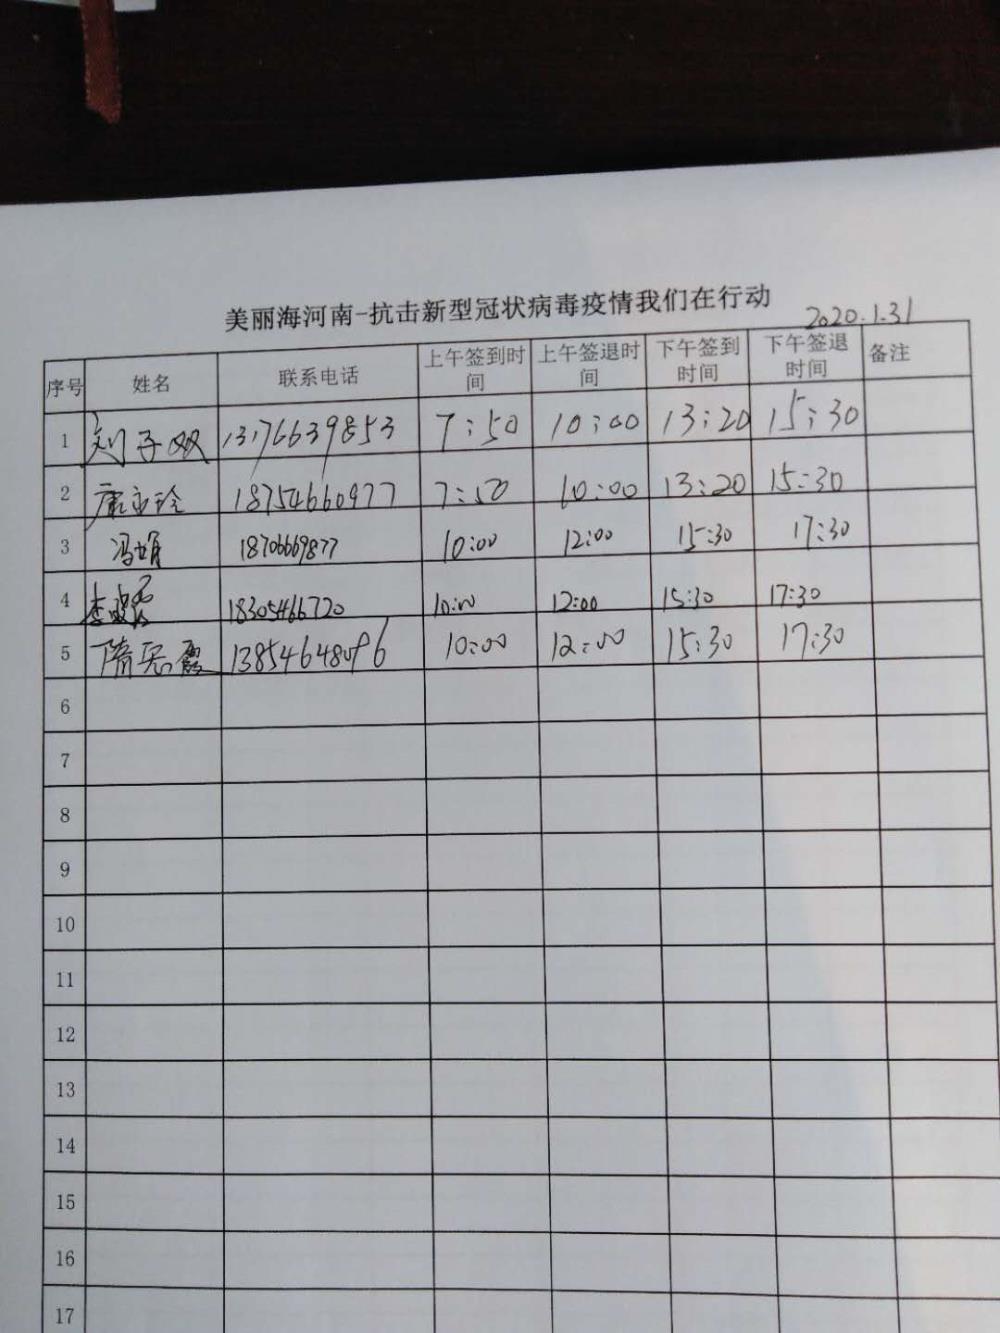 美丽海河南-抗击新型冠状病毒疫情我们在行动
2020.1.31
序号 姓名 联系电话 上午签到时间 上午签退时间 下午签到时间 下午签退时间 备注
1 刘子双 13176639853 7:50 10:00 13:20 15:30
2 18754660977 7:50 10:00 13:20 15:30
3 冯娟 18706669877 10:00 12:00 15:30 17:30
4 李 18305466720 10:00 12:00 15:30 17:30
5 隋 霞 13854648096 10:00 12:00 15:30 17:30
6
7
8
9
10
11
12
13
14
15
16
17